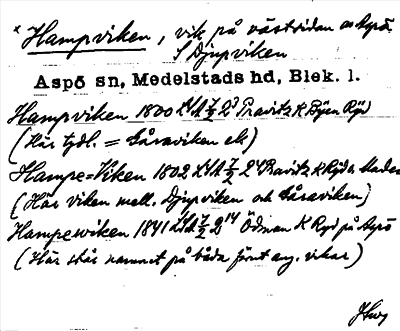 * Hampviken, vik på västsidan av Aspö.
S Djupviken
Aspö sn, Medelstads hd, Blek. l.
Hampviken 1800 LSA 7/2 2³ Pravitz K Byen Ryd
(Här tydl. = Låraviken ek)
Hampe=Viken 1802 LSA 7/2 2⁴ Pravitz K Ryds
(Här viken mell. Djupviken och Låraviken)
Hampewiken 1841 LSA 7/2 2¹⁴ Ödman K Ryd på Aspö
(Här står namnet på båda först ang. vikar)